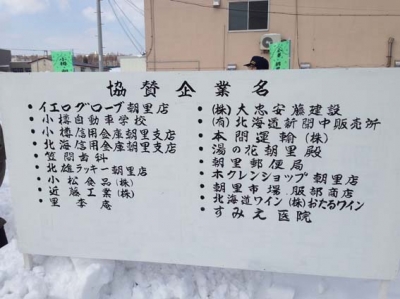 協賛企業名
・イエローグローブ朝里店
・小樽自動車学校
・小樽信用金庫朝里支店
・北海信用金庫朝里支店
・笠間歯科
・北雄ラッキー朝里店
・小松食品(株)
・近藤工業(株)
・里杏庵
・(株)大忠安藤建設
・(有)北海道新聞中販売所
・本間運輸(株)
・湯の花朝里殿
・朝里郵便局
・ホクレンショップ朝里店
・朝里市場服部商店
・北海道ワイン(株)おたるワイン
・すみえ医院